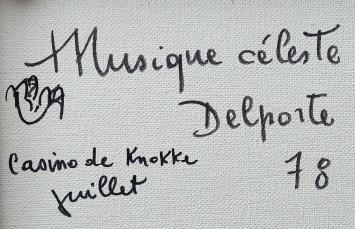 Musique céleste
Delporte
Casino de Knokke
78
juillet